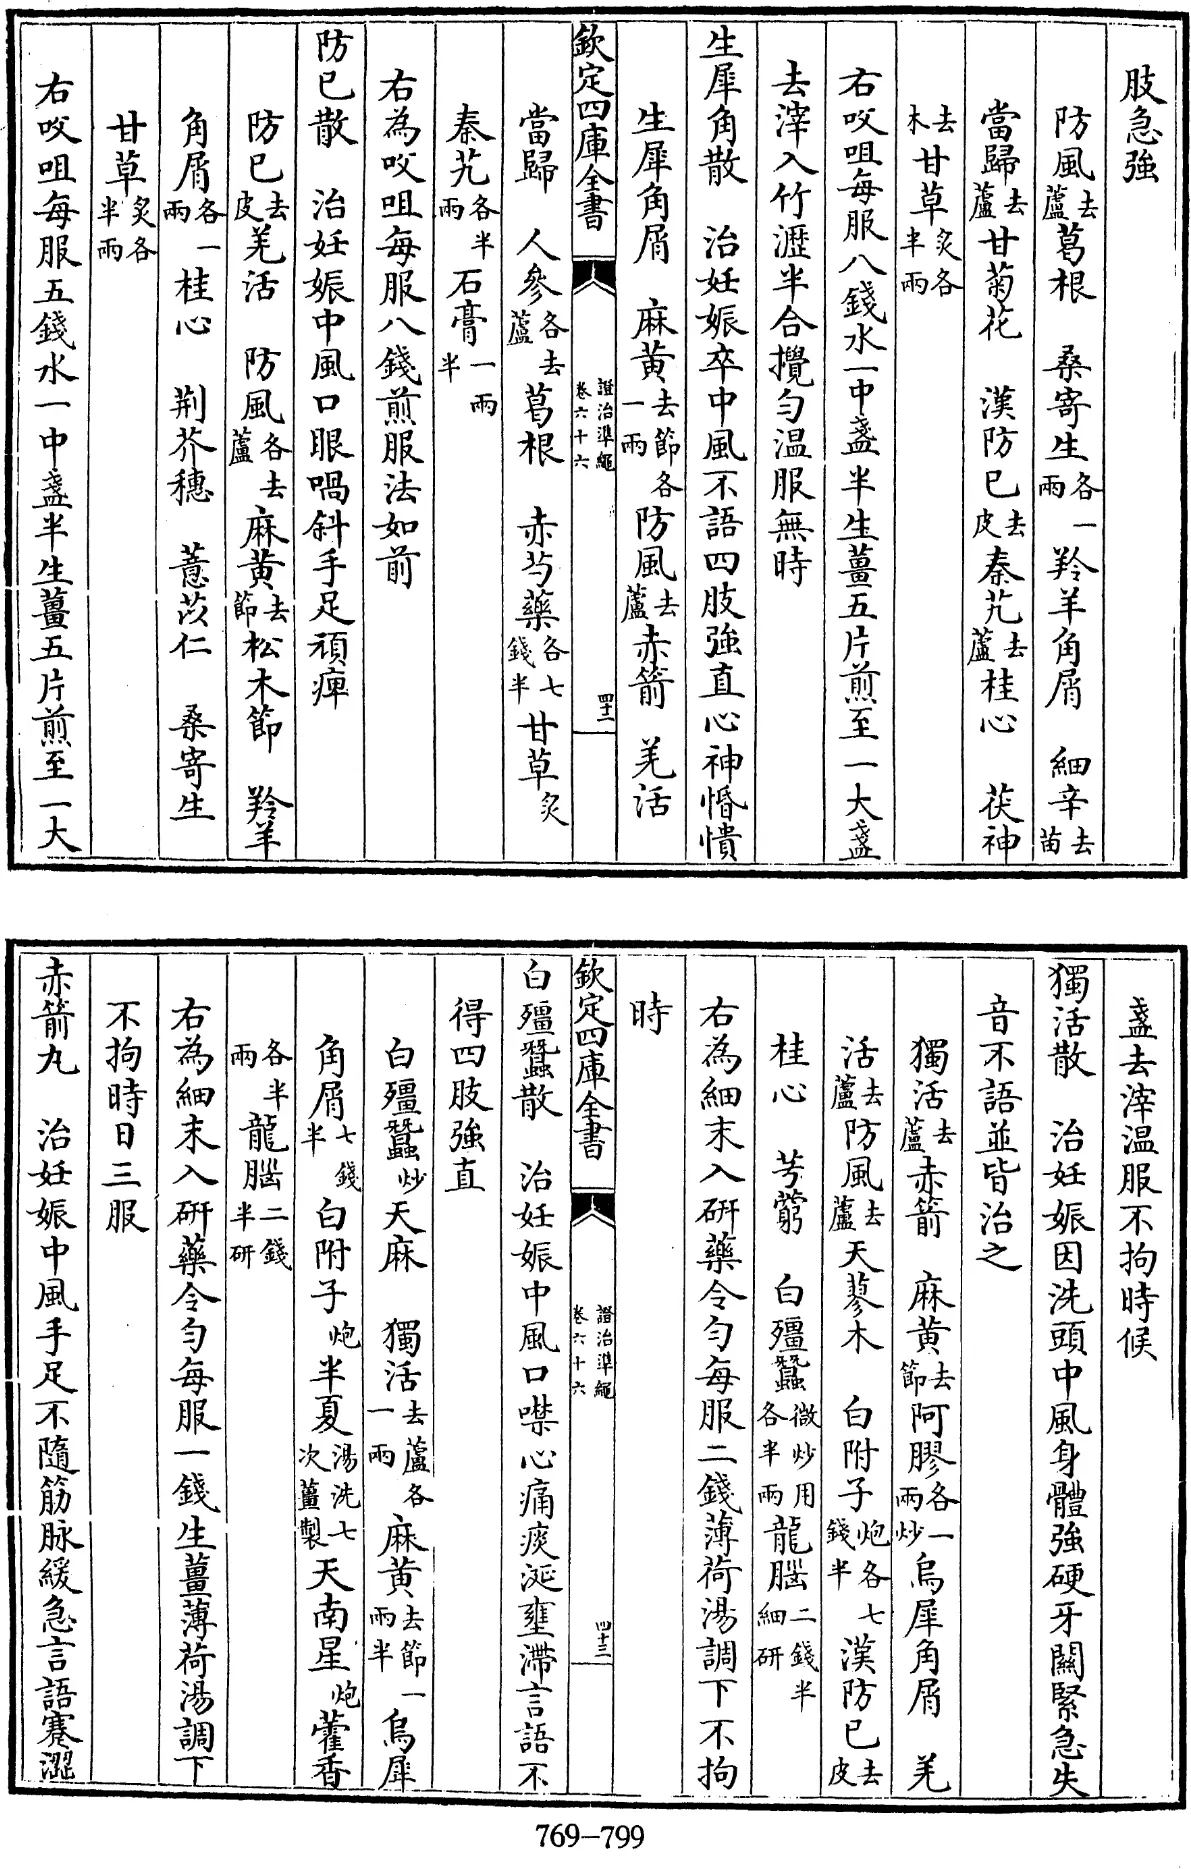 肢急強
防風去蘆葛根　桑寄生各一兩羚羊角屑　細辛去苗
當歸去蘆甘菊花　漢防已去皮秦艽去蘆桂心　茯神
去木甘草炙各半兩
右㕮咀每服八錢水一中盞半生薑五片煎至一大盞
去滓入竹瀝半合攪勻温服無時
生犀角散　治妊娠卒中風不語四肢強直心神惛憒
生犀角屑　麻黄去節各一兩防風去蘆赤箭　羌活
欽定四庫全書　證治準繩卷六十六　四十二
當歸　人參各去蘆葛根　赤芍藥各七錢半甘草炙
秦艽各半兩石膏一兩半
右為㕮咀每服八錢煎服法如前
防已散　治妊娠中風口眼喎斜手足頑痺
防已去皮羌活　防風各去蘆麻黄去節松木節　羚羊
角屑各一兩桂心　荆芥穗　薏苡仁　桑寄生
甘草炙各半兩
右㕮咀每服五錢水一中盞半生薑五片煎至一大
盞去滓温服不拘時候
獨活散　治妊娠因洗頭中風身體強硬牙關緊急失
音不語並皆治之
獨活去蘆赤箭　麻黄去節阿膠各一兩炒烏犀角屑　羌
活去蘆防風去蘆天蓼木　白附子炮各七錢半漢防已去皮
桂心　芎藭　白殭蠶微炒用各半兩龍腦二錢半細研
右為細末入研藥令勻每服二錢薄荷湯調下不拘
時
欽定四庫全書　證治準繩卷六十六　四十三
白殭蠶散　治妊娠中風口噤心痛痰涎壅滯言語不
得四肢強直
白殭蠶炒天麻　獨活去蘆各一兩麻黄去節一兩半烏犀
角屑七錢半白附子炮半夏湯洗七次薑製天南星炮藿香
各半兩龍腦二錢半研
右為細末入研藥令勻每服一錢生薑薄荷湯調下
不拘時日三服
赤箭丸　治妊娠中風手足不隨筋脉緩急言語蹇澀
769-799